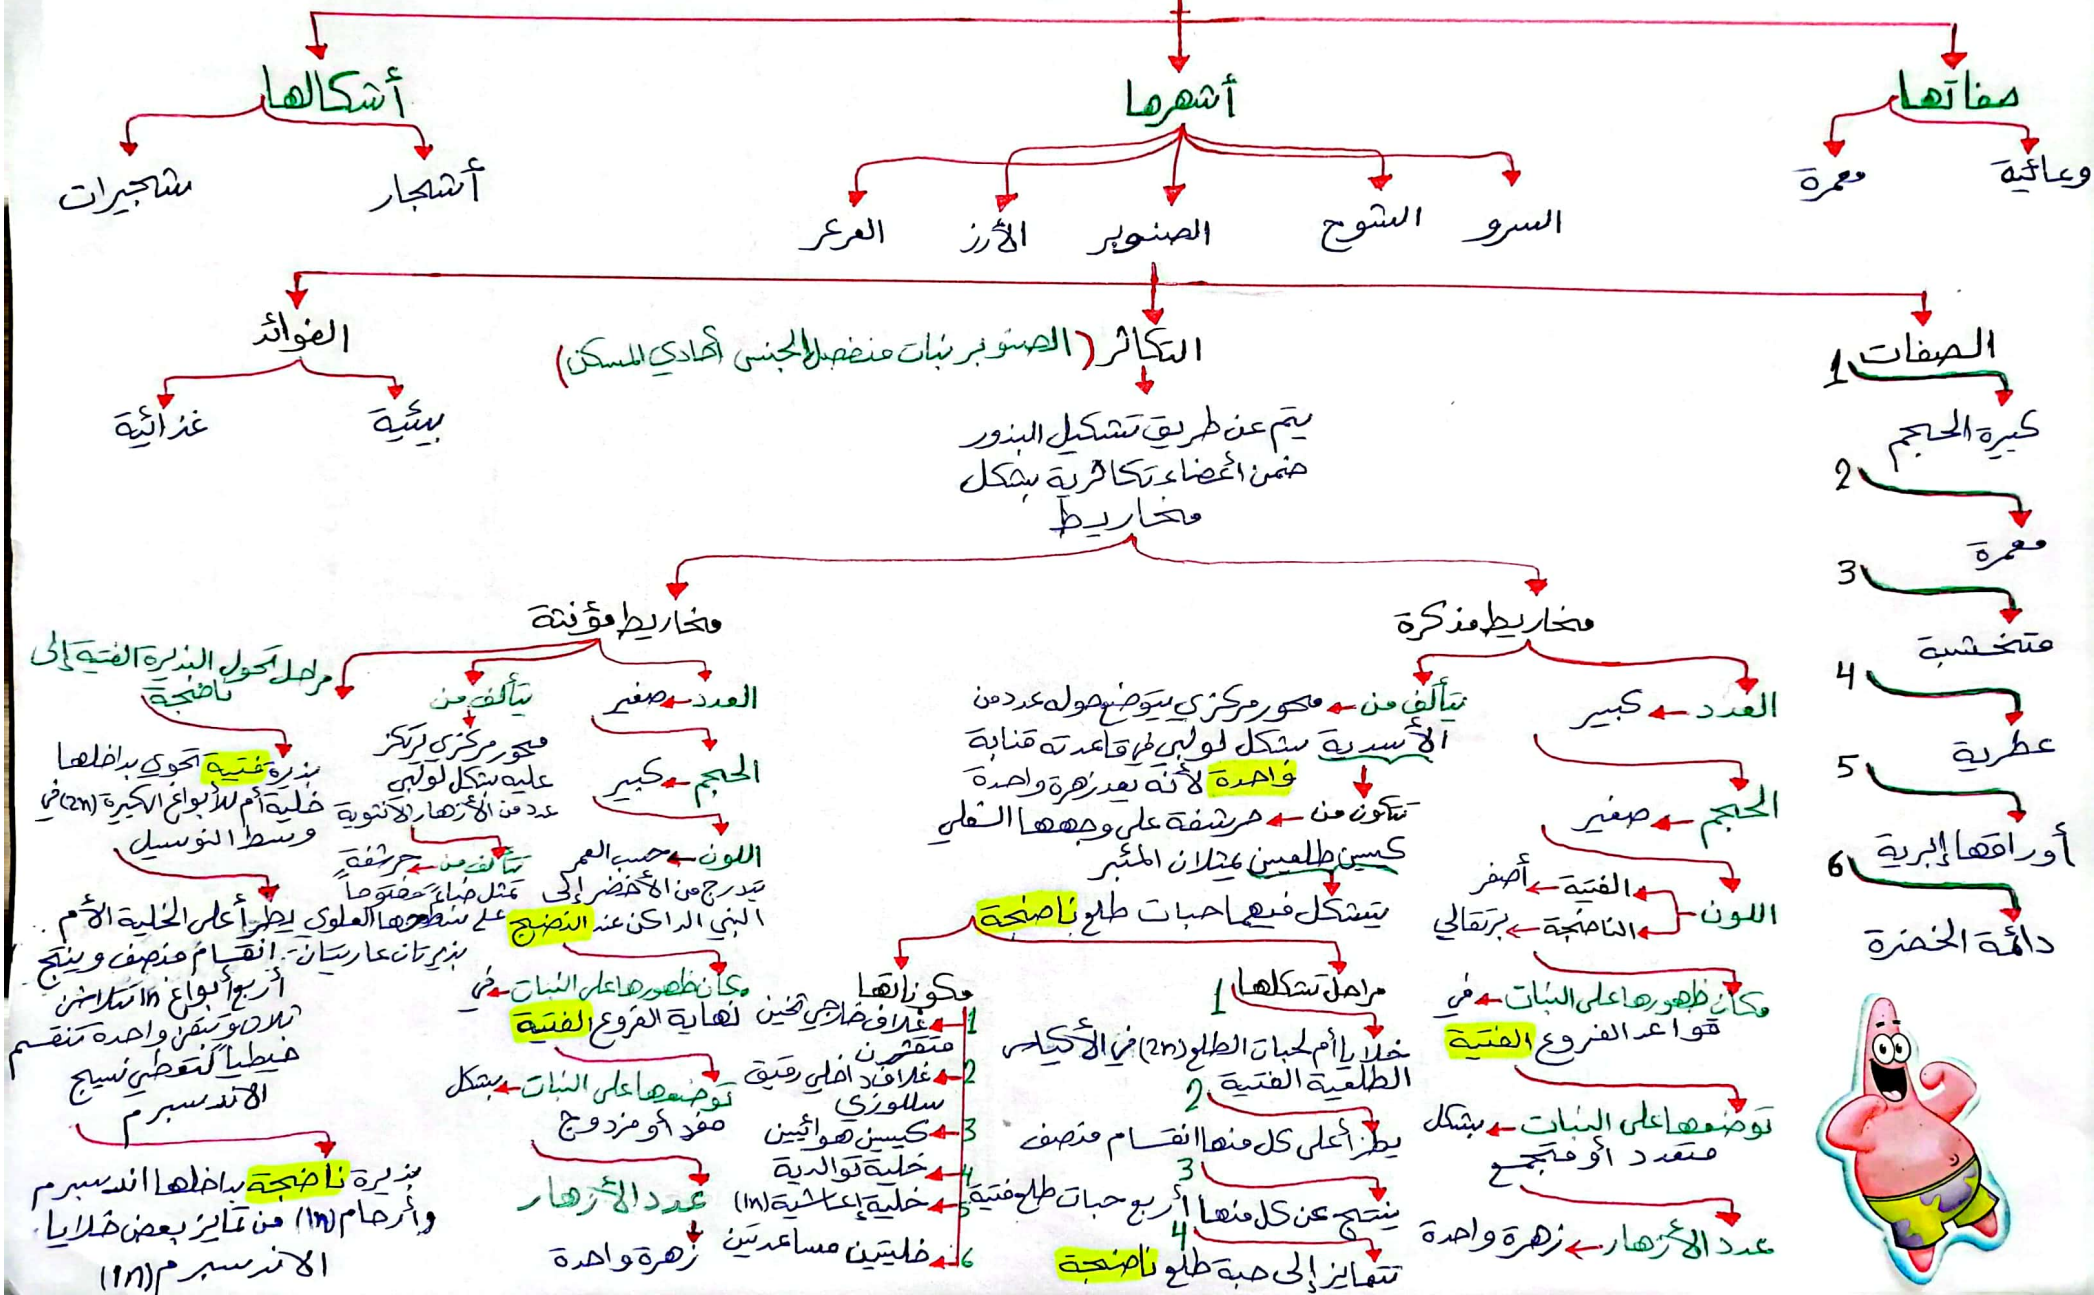 صفاتها
وعائية
معمرة
أشهرها
السرو
الشوح
الصنوبر
الأرز
العرعر
أشكالها
أشجار
شجيرات
الصفات
1
كبيرة الحجم
2
معمرة
3
متخشبة
4
عطرية
5
أوراقها إبرية
6
دائمة الخضرة
التكاثر (الصنوبر نبات منفصل الجنس أحادي المسكن)
يتم عن طريق تشكيل البذور
ضمن أعضاء تكاثرية بشكل
مخاريط
الفوائد
بيئية
غذائية
مخاريط مذكرة
العدد ← كبير
الحجم ← صغير
اللون
الفتية ← أصفر
الناضجة ← برتقالي
مكان ظهورها على النبات ← في
قواعد الفروع الفتية
توضعها على النبات ← بشكل
متعدد أو متجمع
عدد الأزهار ← زهرة واحدة
تتألف من ← محور مركزي يتوضع حوله عدد من
الأسدية بشكل لولبي في قاعدته قنابة
واحدة لأنه يعد زهرة واحدة
تتكون من ← حرشفة على وجهها السفلي
كيسين طلعيين يمثلان المئبر
يتشكل فيهما حبات طلع ناضجة
مراحل تشكلها
1
خلايا أم لحبات الطلع (2n) في الأكياس
الطلعية الفتية
2
يطرأ على كل منها انقسام منصف
3
ينتج عن كل منها أربع حبات طلع فتية
4
تتمايز إلى حبة طلع ناضجة
مكوناتها
1 ← غلاف خارجي ثخين
متقشرن
2 ← غلاف داخلي رقيق
سللوزي
3 ← كيسين هوائيين
4 ← خلية توالدية
5 ← خلية إعاشية (1n)
6 ← خليتين مساعدتين
مخاريط مؤنثة
العدد ← صغير
الحجم ← كبير
اللون ← حسب العمر
يتدرج من الأخضر إلى
البني الداكن عند النضج
مكان ظهورها على النبات ← في
نهاية الفروع الفتية
توضعها على النبات ← بشكل
مفرد أو مزدوج
عدد الأزهار
زهرة واحدة
تتألف من
محور مركزي ترتكز
عليه بشكل لولبي
عدد من الأزهار الأنثوية
تتألف من ← حرشفة
تمثل خباءً مفتوحاً
على سطحها العلوي
بذيرتان عاريتان
مراحل تحول البذيرة الفتية إلى
ناضجة
بذيرة فتية تحوي بداخلها
خلية أم للأبواغ الكبيرة (2n) في
وسط النوسيل
يطرأ على الخلية الأم
انقسام منصف وينتج
أربع أبواغ 1n تتلاشى
ثلاث وتبقى واحدة تنقسم
خيطياً لتعطي نسيج
الاندسبرم
بذيرة ناضجة بداخلها اندسبرم
وأرحام (1n) من تمايز بعض خلايا
الاندسبرم (1n)